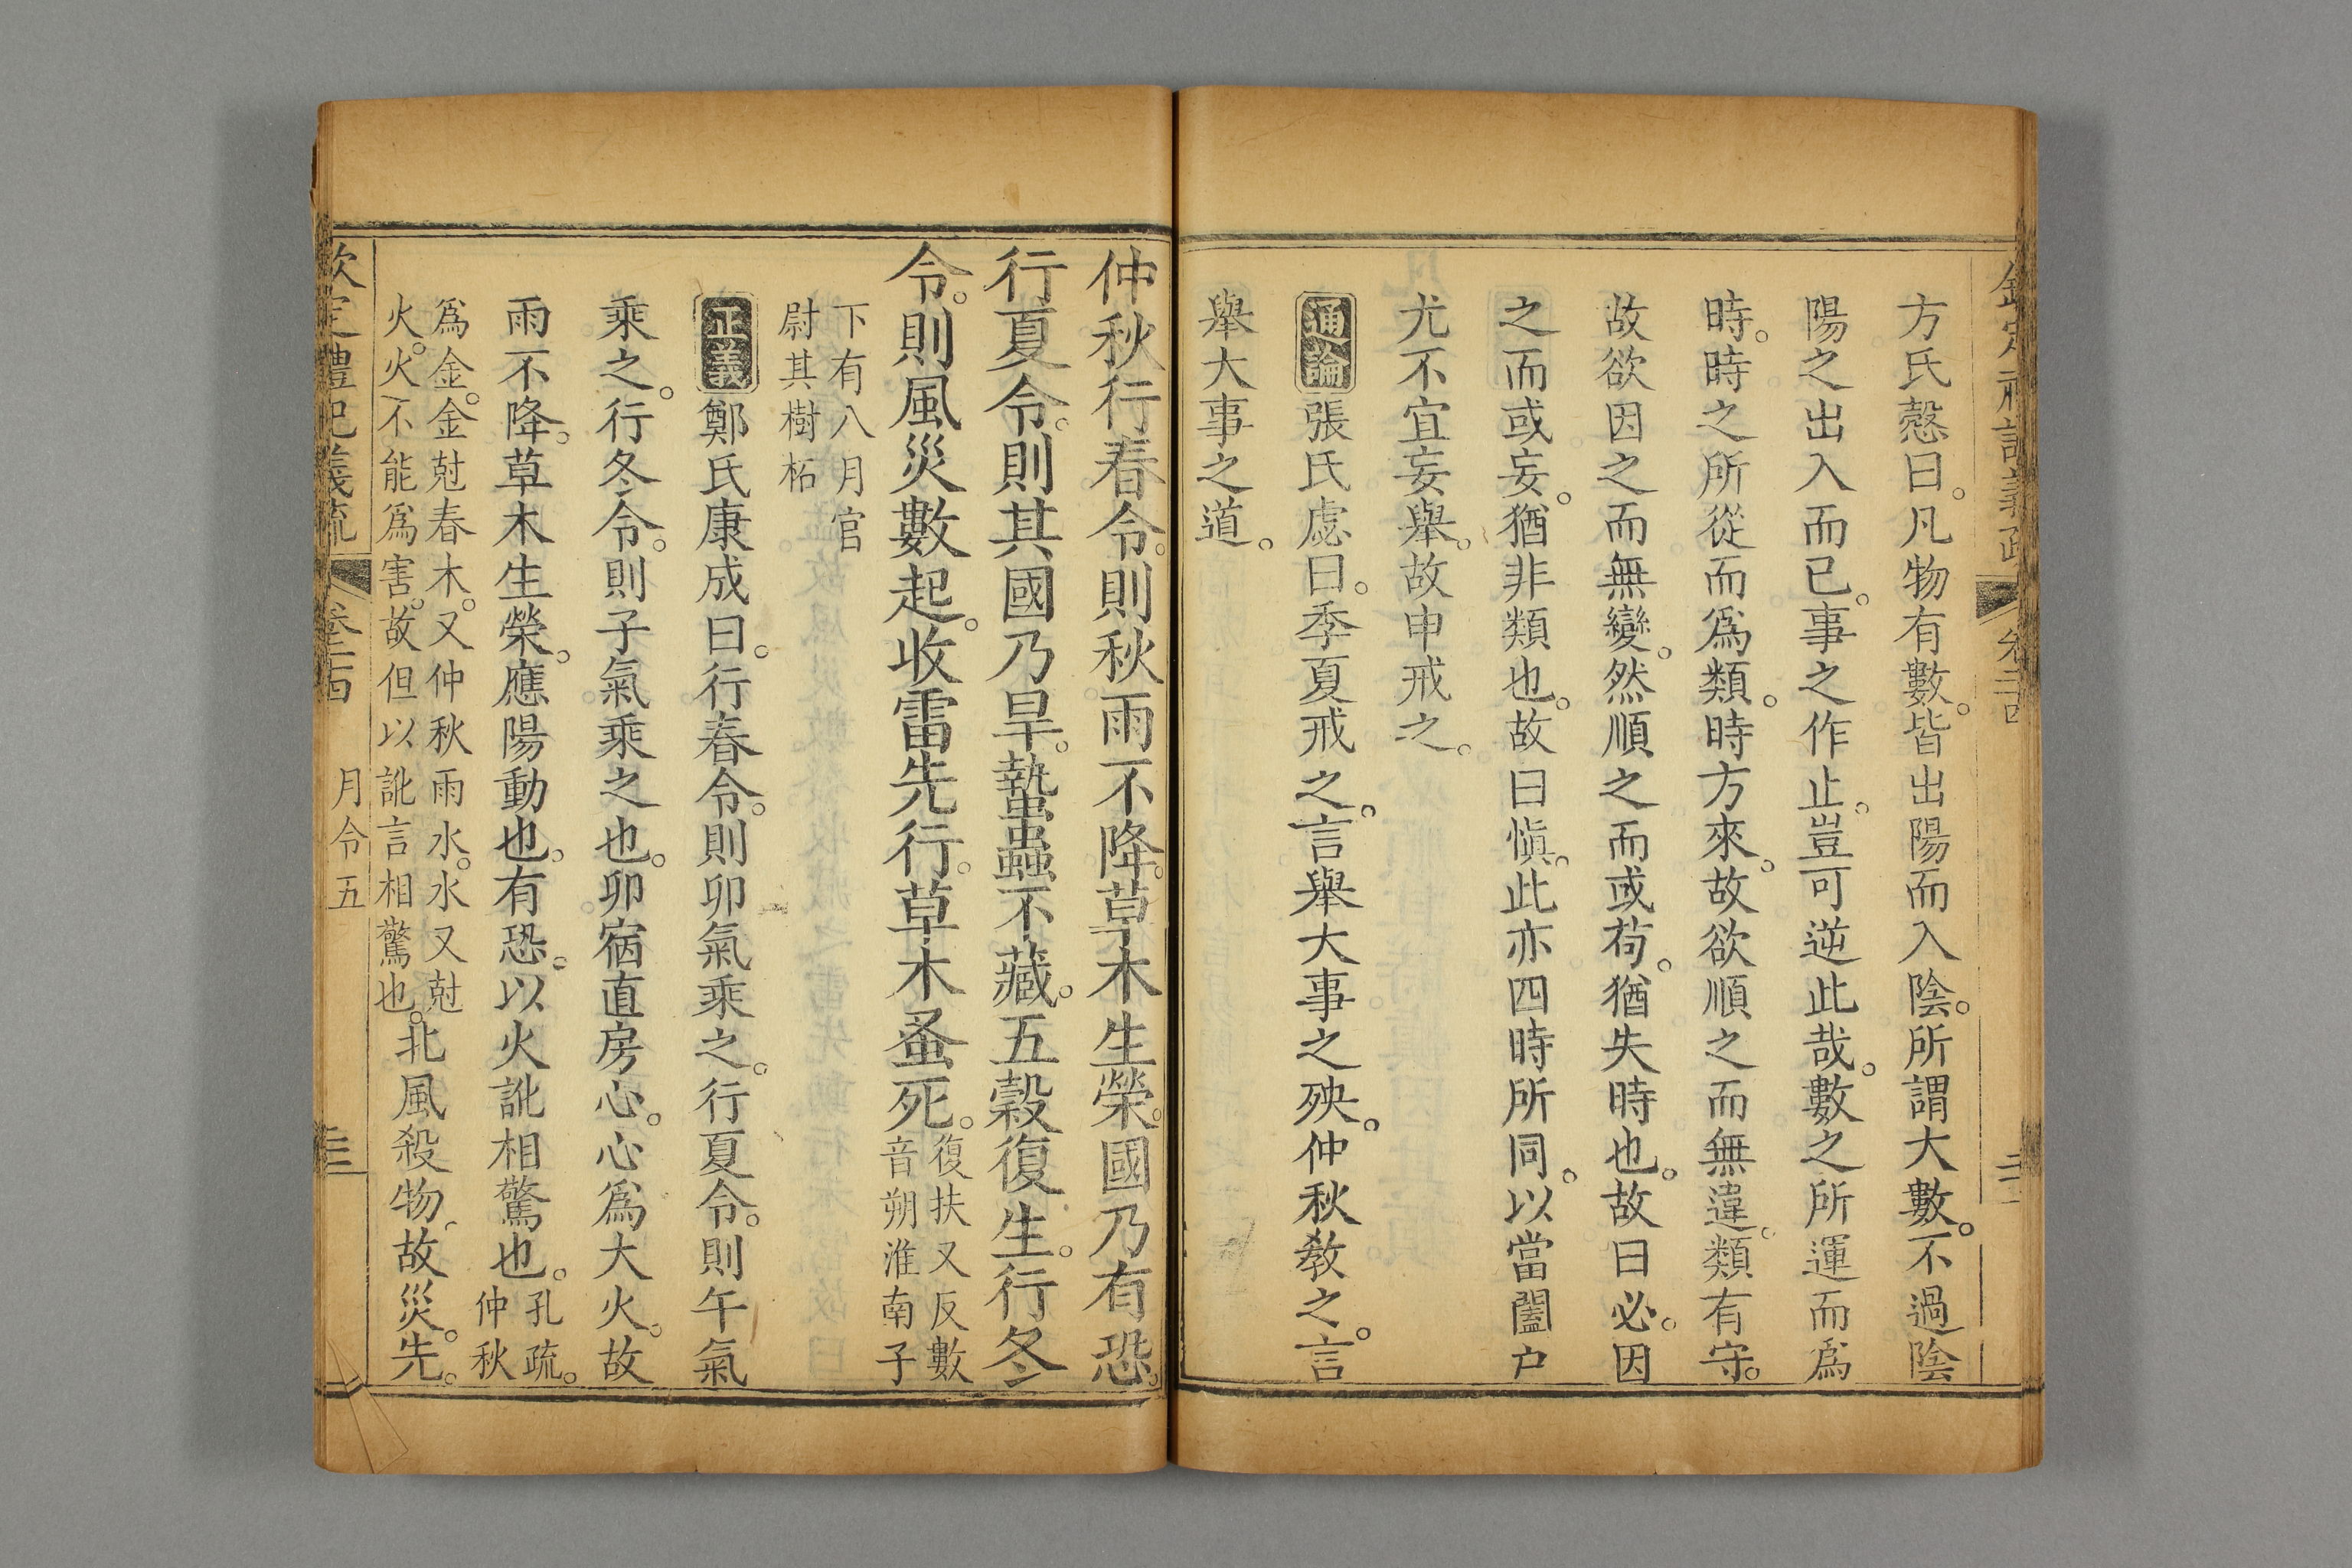 方氏慤曰。凡物有數。皆出陽而入陰。所謂大數。不過陰
陽之出入而已。事之作止。豈可逆此哉。數之所運而爲
時。時之所從而爲類。時方來。故欲順之而無違。類有守。
故欲因之而無變。然順之而或苟。猶失時也。故曰必。因
之而或妄。猶非類也。故曰愼。此亦四時所同。以當闔户
尤不宜妄舉。故申戒之。
通論張氏虙曰。季夏戒之。言舉大事之殃。仲秋敎之。言
舉大事之道。
仲秋行春令。則秋雨不降。草木生榮。國乃有恐。
行夏令。則其國乃旱。蟄蟲不藏。五穀復生。行冬
令。則風災數起。收雷先行。草木蚤死。復扶又反數
音朔淮南子
下有八月官
尉其樹柘
正義鄭氏康成曰。行春令。則卯氣乘之。行夏令。則午氣
乘之。行冬令。則子氣乘之也。卯宿直房心。心爲大火。故
雨不降。草木生榮。應陽動也。有恐。以火訛相驚也。孔疏。
仲秋
爲金。金尅春木。又仲秋雨水。水又尅
火。火不能爲害。故但以訛言相驚也。北風殺物。故災。先。
欽定禮記義疏 卷二十四 月令五